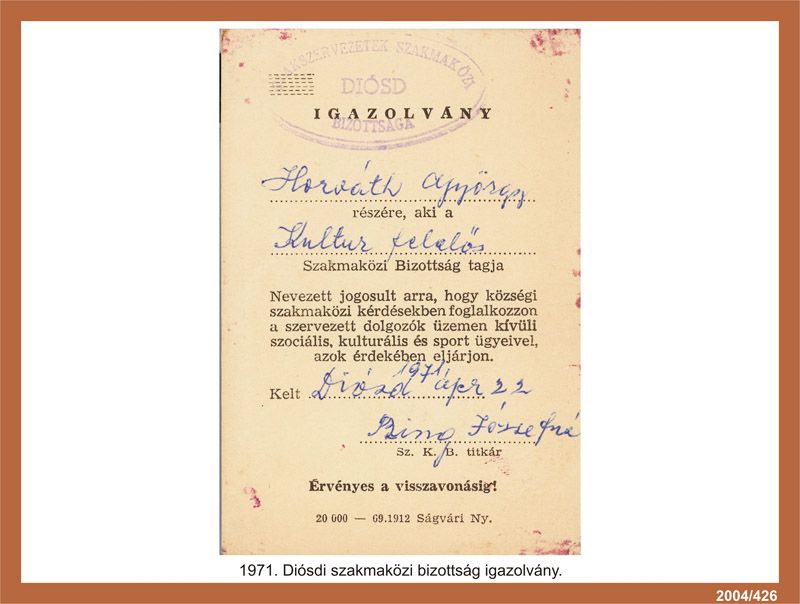 SZAKSZERVEZETEK SZAKMAKÖZI
DIÓSD
BIZOTTSÁGA
IGAZOLVÁNY
Horváth György
részére, aki a
Kultur felelős
Szakmaközi Bizottság tagja
Nevezett jogosult arra, hogy községi
szakmaközi kérdésekben foglalkozzon
a szervezett dolgozók üzemen kívüli
szociális, kulturális és sport ügyeivel,
azok érdekében eljárjon.
Kelt Diósd 1971 ápr 22
Bing Józsefné
Sz. K. B. titkár
Érvényes a visszavonásig!
20 000 — 69.1912 Ságvári Ny.
1971. Diósdi szakmaközi bizottság igazolvány.
2004/426